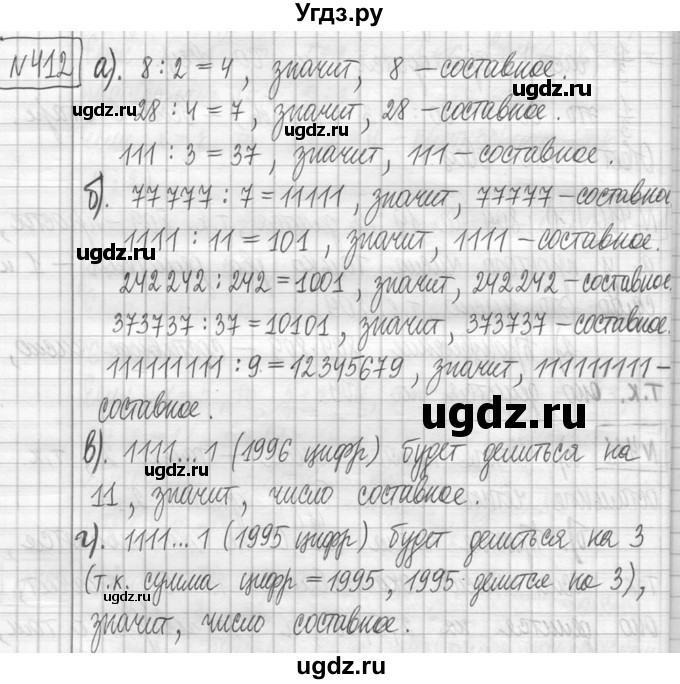 Угдз.ру
№412 а). 8 : 2 = 4, значит, 8 – составное.
ugdz.ru ugdz.ru
28 : 4 = 7, значит, 28 – составное.
111 : 3 = 37, значит, 111 – составное.
б). 77777 : 7 = 11111, значит, 77777 – составное
ugdz.ru
1111 : 11 = 101, значит, 1111 – составное.
242242 : 242 = 1001, значит, 242242 – составное.
373737 : 37 = 10101, значит, 373737 – составное.
111111111 : 9 = 12345679, значит, 111111111 –
составное.
ugdz.ru
в). 1111...1 (1996 цифр) будет делиться на
ugdz.ru
11, значит, число составное.
г). 1111...1 (1995 цифр) будет делиться на 3
(т.к. сумма цифр = 1995, 1995 делится на 3),
ugdz.ru ugdz.ru
значит, число составное.
ugdz.ru